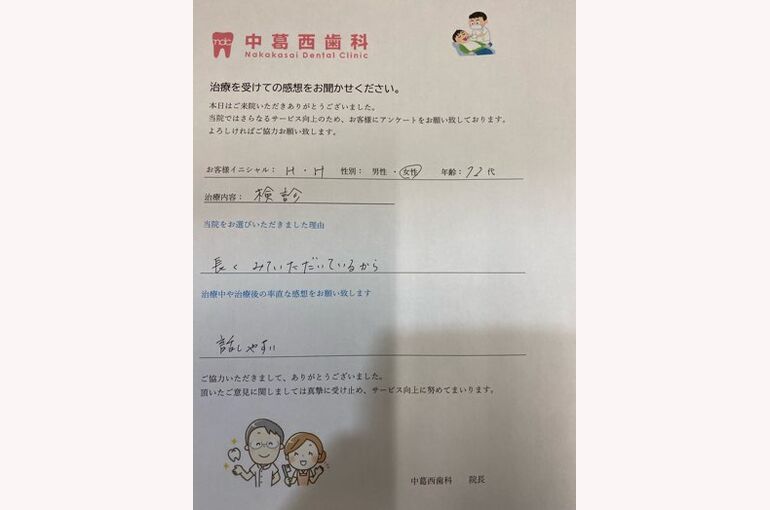 mdc 中葛西歯科
Nakakasai Dental Clinic
治療を受けての感想をお聞かせください。
本日はご来院いただきありがとうございました。
当院ではさらなるサービス向上のため、お客様にアンケートをお願い致しております。
よろしければご協力お願い致します。
お客様イニシャル： H ・ H 性別： 男性 ・ 女性 年齢： 72 代
治療内容： 検診
当院をお選びいただきました理由
長く みていただいているから
治療中や治療後の率直な感想をお願い致します
話しやすい
ご協力いただきまして、ありがとうございました。
頂いたご意見に関しましては真摯に受け止め、サービス向上に努めてまいります。
中葛西歯科 院長